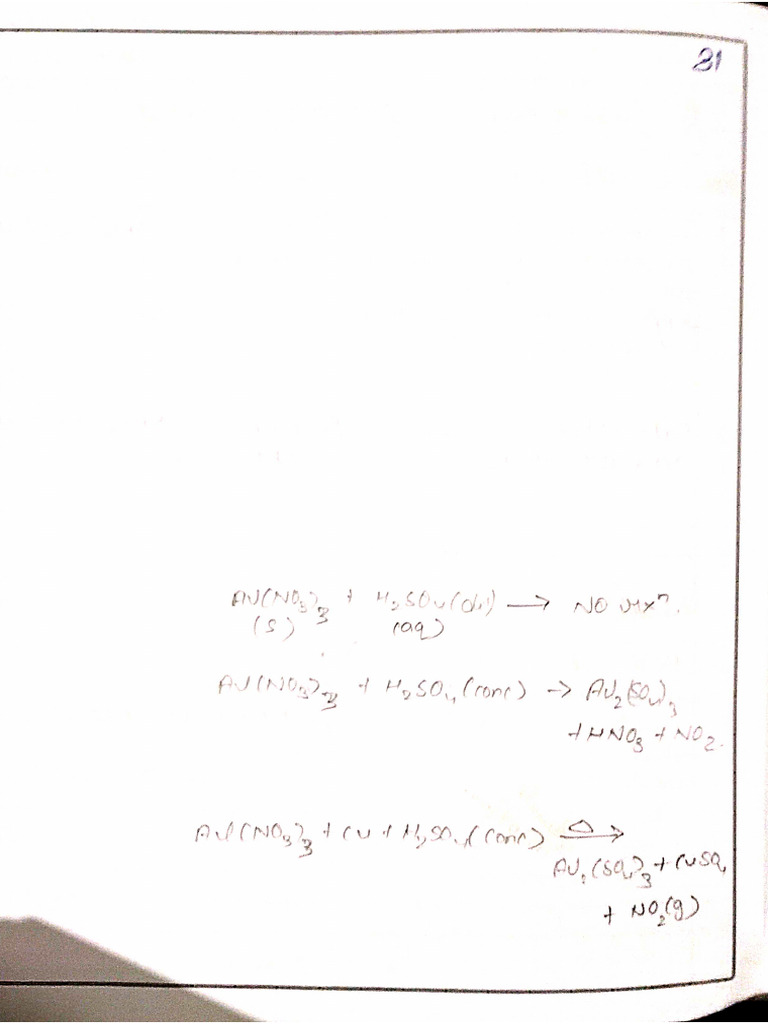 31
Al(NO3)3 + H2SO4(dil) → NO rxn.
(s) (aq)
Al(NO3)3 + H2SO4(conc) → Al2(SO4)3
+ HNO3 + NO2.
Al(NO3)3 + Cu + H2SO4(conc) →Δ
Al2(SO4)3 + CuSO4
+ NO2(g)